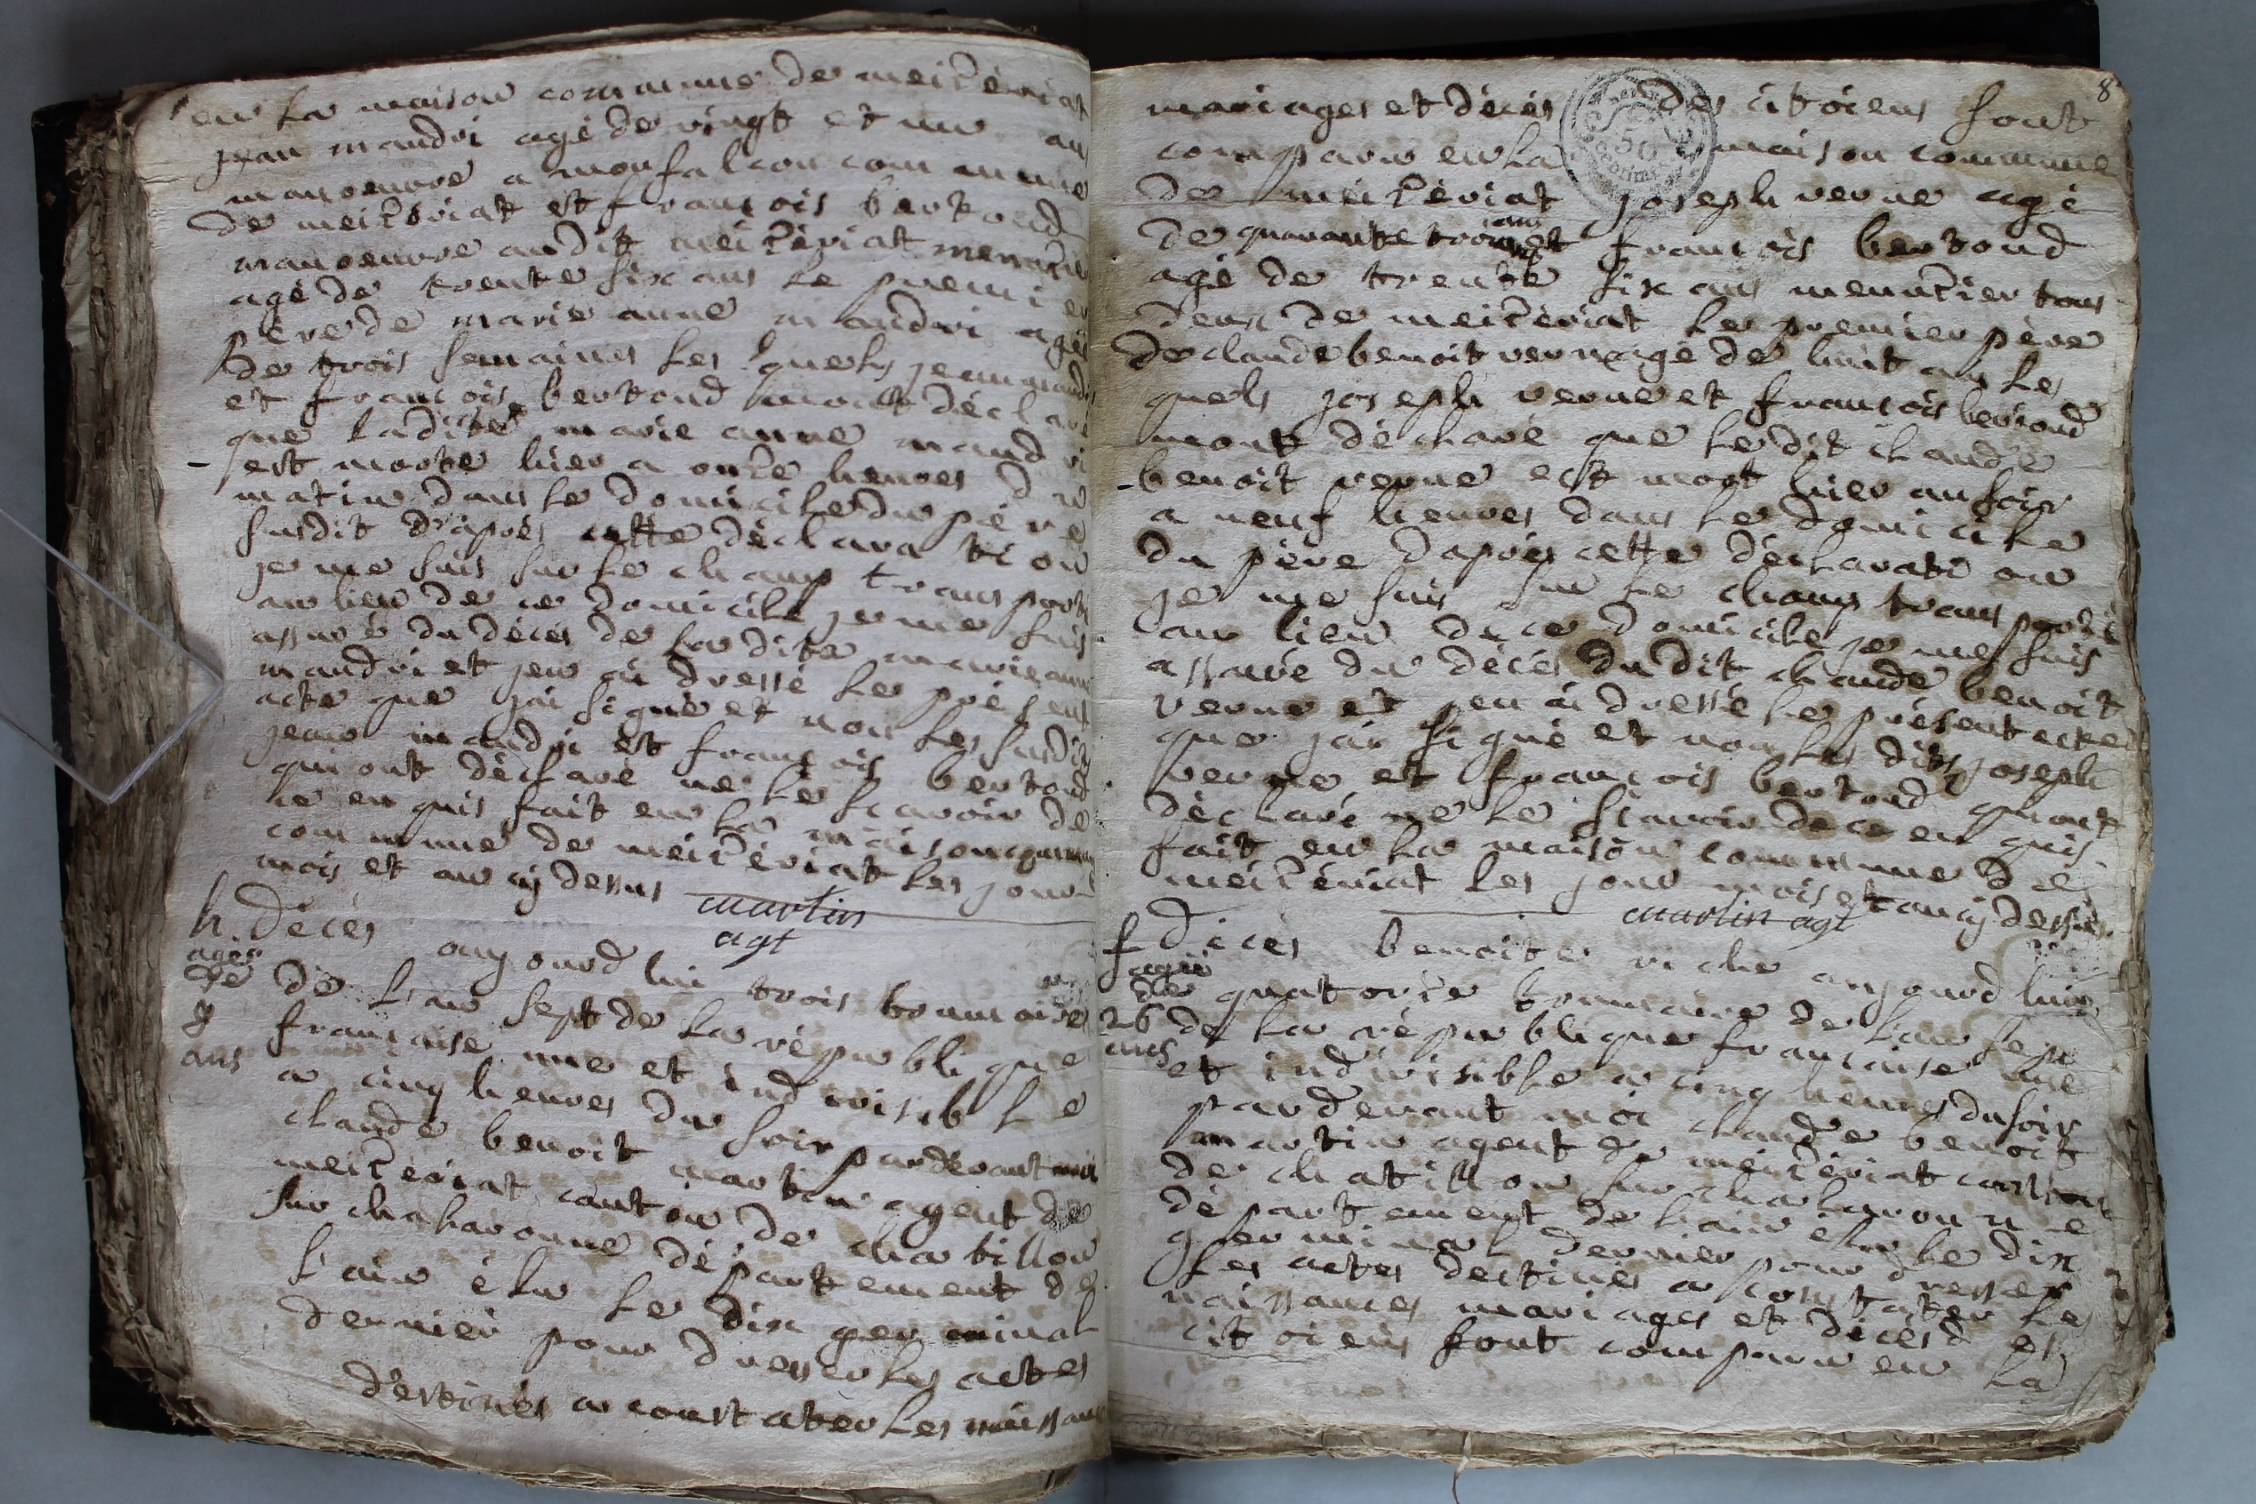 en la maison commune de meizériat
jean mandri agé de vingt et un an
manoeuvre a monfalcon commune
de meizériat et francois bertoud
manoeuvre audit meizériat
agé de trente six ans le premier
père de marie anne mandri agée
de trois semaines les quels jean mandri
et francois bertoud mont déclaré
que ladite marie anne mandri
est morte hier a onze heures du
matin dans le domicile du père
susdit d'après cette déclaration
je me suis sur le champ transporté
au lieu de ce domicile je me suis
assuré du décés de la dite marie anne
mandri et jen ai dressé le présent
acte que jai signé et non les susdits
jean mandri et francois bertoud
qui ont déclaré ne le scavoir de
ce enquis fait en la maison commune
commune de meizériat les jour
mois et an cy dessus
martin
agt
h. décés aujourd hui trois brumaire
agé
de
8
ans
de l'an sept de la république
francaise une et indivisible
a cinq heures du soir pardevant moi
claude benoit martin agent de
meizériat canton de chatillon
sur chalaronne département de
l'ain élu le dix germinal
dernier pour dresser les actes
destinés a constater les naissances
8
mariages et décés des citoiens sont
comparu en la maison commune
de meizériat joseph verne agé
de quarante trois ans et francois bertoud
agé de trente six ans menuzier tous
deux de meizériat le premier père
de claude benoit verne agé de huit ans les
quels joseph verne et francois bertoud
mont déclaré que ledit claude
benoit verne est mort hier au soir
a neuf heures dans le domicile
du père d'après cette déclaration
je me suis sur le champ transporté
au lieu de ce domicile je me suis
assuré du décés dudit claude benoit
verne et jen ai dressé le présent acte
que jai signé et non les dits joseph
verne et francois bertoud qui ont
déclaré ne le scavoir de ce enquis
fait en la maison commune de
meizériat les jour mois et an cy dessus
martin agt
f décés benoite riche aujourd huis
agée
de
26
ans
quatorze brumaire de l'an sept
de la république francaise une
et indivisible a cinq heures du soir
pardevant moi claude benoit
martin agent de meizériat canton
de chatillon sur chalaronne
département de l'ain élu le dix
germinal dernier pour dresser
les actes destinés a constater les
naissances mariages et décés des
citoiens sont comparu en la